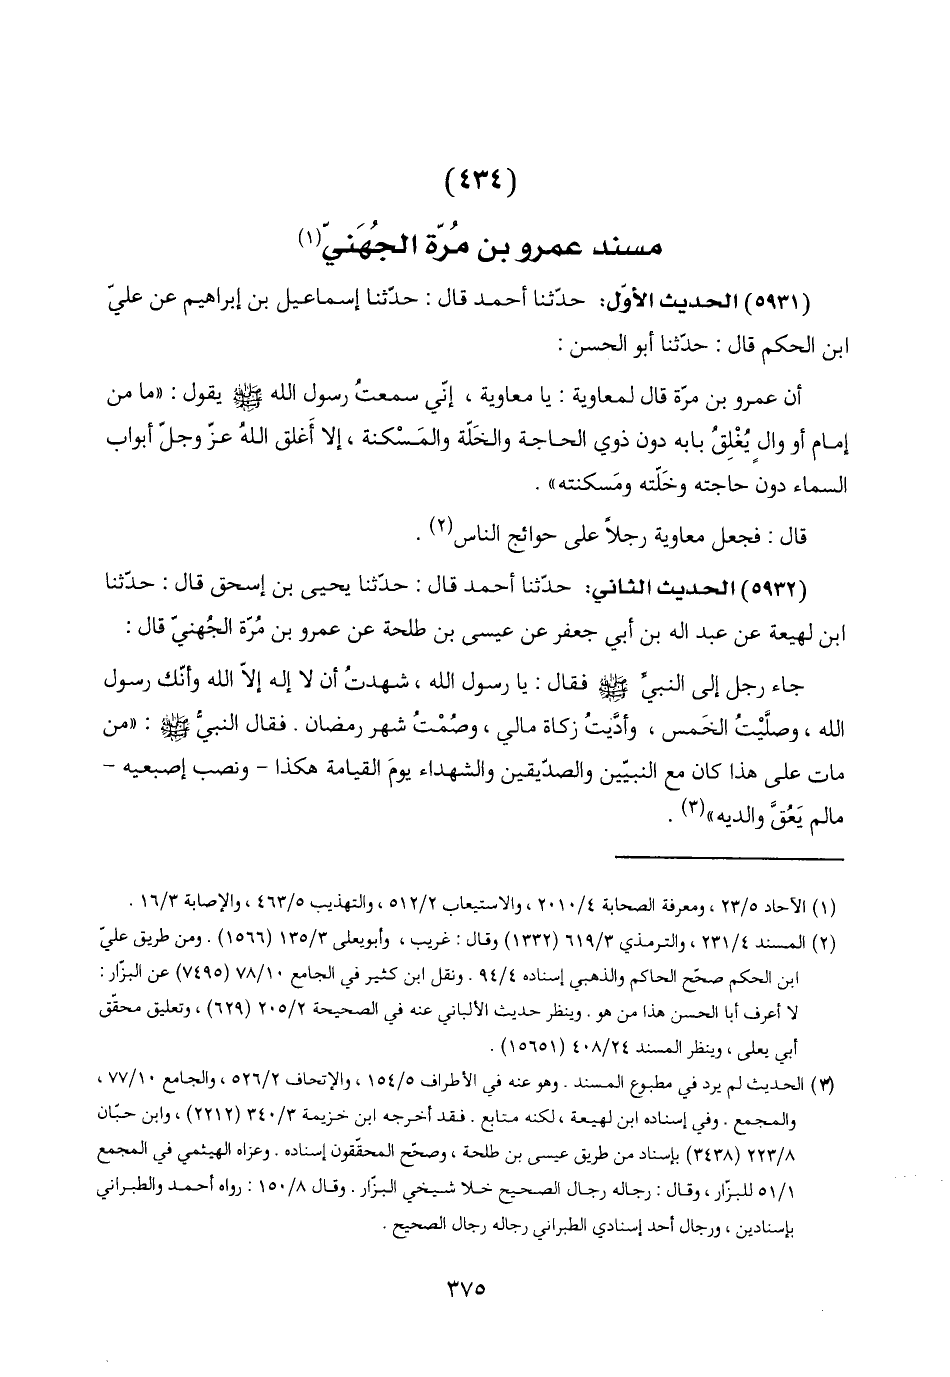 (٤٣٤)
مسند عمرو بن مُرّة الجُهَنيّ(١)
(٥٩٣١) الحديث الأوّل: حدّثنا أحمد قال : حدّثنا إسماعيل بن إبراهيم عن عليّ
ابن الحكم قال : حدّثنا أبو الحسن :
أن عمرو بن مرّة قال لمعاوية : يا معاوية ، إنّي سمعتُ رسول الله ﷺ يقول : «ما من
إمام أو والٍ يُغْلِقُ بابه دون ذوي الحاجة والخَلّة والمَسْكنة ، إلا أَغلق اللهُ عزّ وجلّ أبواب
السماء دون حاجته وخَلّته ومَسكنته» .
قال : فجعل معاوية رجلاً على حوائج الناس(٢) .
(٥٩٣٢) الحديث الثاني: حدّثنا أحمد قال : حدّثنا يحيى بن إسحق قال : حدّثنا
ابن لهيعة عن عبد اله بن أبي جعفر عن عيسى بن طلحة عن عمرو بن مُرّة الجُهنيّ قال :
جاء رجل إلى النبيِّ ﷺ فقال : يا رسول الله ، شهدتُ أن لا إله إلاّ الله وأنّك رسول
الله ، وصلَّيْتُ الخَمس ، وأدَّيتُ زكاة مالي ، وصُمْتُ شهر رمضان . فقال النبيُّ ﷺ : «من
مات على هذا كان مع النبيّين والصدّيقين والشهداء يومَ القيامة هكذا – ونصب إصبعيه –
مالم يَعُقَّ والديه»(٣) .
(١) الآحاد ٢٣/٥ ، ومعرفة الصحابة ٢٠١٠/٤ ، والاستيعاب ٥١٢/٢ ، والتهذيب ٤٦٣/٥ ، والإصابة ١٦/٣ .
(٢) المسند ٢٣١/٤ ، والترمذي ٦١٩/٣ (١٣٣٢) وقال : غريب ، وأبويعلى ١٣٥/٣ (١٥٦٦) . ومن طريق عليّ
ابن الحكم صحّح الحاكم والذهبي إسناده ٩٤/٤ . ونقل ابن كثير في الجامع ٧٨/١٠ (٧٤٩٥) عن البزّار :
لا أعرف أبا الحسن هذا من هو . وينظر حديث الألباني عنه في الصحيحة ٢٠٥/٢ (٦٢٩) ، وتعليق محقّق
أبي يعلى ، وينظر المسند ٤٠٨/٢٤ (١٥٦٥١) .
(٣) الحديث لم يرد في مطبوع المسند . وهو عنه في الأطراف ١٥٤/٥ ، والإتحاف ٥٢٦/٢ ، والجامع ٧٧/١٠ ،
والمجمع . وفي إسناده ابن لهيعة ، لكنه متابع . فقد أخرجه ابن خزيمة ٣٤٠/٣ (٢٢١٢) ، وابن حبّان
٢٢٣/٨ (٣٤٣٨) بإسناد من طريق عيسى بن طلحة ، وصحّح المحقّقون إسناده . وعزاه الهيثمي في المجمع
٥١/١ للبزّار ، وقال : رجاله رجال الصحيح خلا شيخي البزّار . وقال ١٥٠/٨ : رواه أحمد والطبراني
بإسنادين ، ورجال أحد إسنادي الطبراني رجاله رجال الصحيح .
٣٧٥